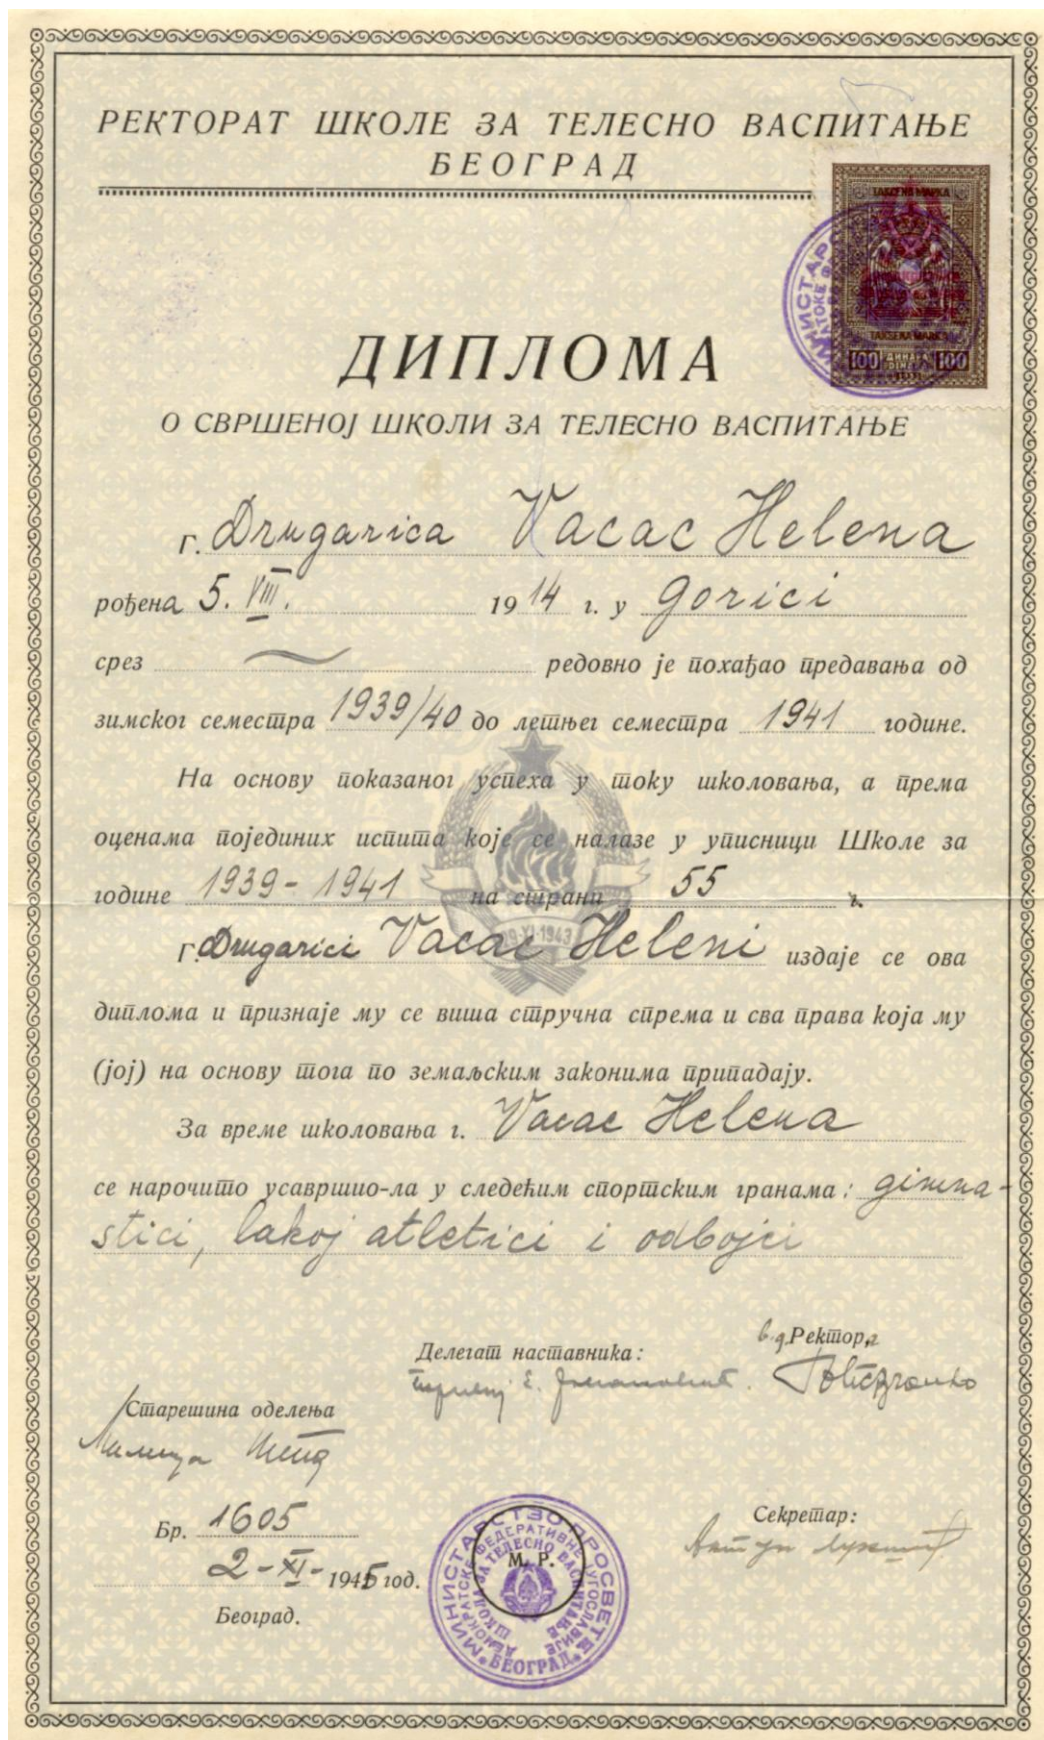 РЕКТОРАТ ШКОЛЕ ЗА ТЕЛЕСНО ВАСПИТАЊЕ
БЕОГРАД
ТАКСЕНА МАРКА
TAKSENA MARKA
100 ДИНАРА 100
ДИПЛОМА
О СВРШЕНОЈ ШКОЛИ ЗА ТЕЛЕСНО ВАСПИТАЊЕ
г. Drugarica Vacac Helena
рођена 5. VIII. 1914 г. у Gorici
срез редовно је похађао предавања од
зимског семестра 1939/40 до летњег семестра 1941 године.
На основу показаног успеха у току школовања, а према
оценама појединих испита које се налазе у уписници Школе за
године 1939-1941 на страни 55 г.
29-XI-1943
г. Drugarici Vacac Heleni издаје се ова
диплома и признаје му се виша стручна спрема и сва права која му
(јој) на основу тога по земаљским законима припадају.
За време школовања г. Vacac Helena
се нарочито усавршио-ла у следећим спортским гранама: gimna-
stici, lakoj atletici i odbojci
в.д. Ректора
Делегат наставника:
Старешина оделења
Бр. 1605
Секретар:
2-XI-1945 год.
Београд.
М. Р.
МИНИСТАРСТВО ПРОСВЕТЕ
ДЕМОКРАТСКЕ ФЕДЕРАТИВНЕ ЈУГОСЛАВИЈЕ
ШКОЛА ЗА ТЕЛЕСНО ВАСПИТАЊЕ
БЕОГРАД